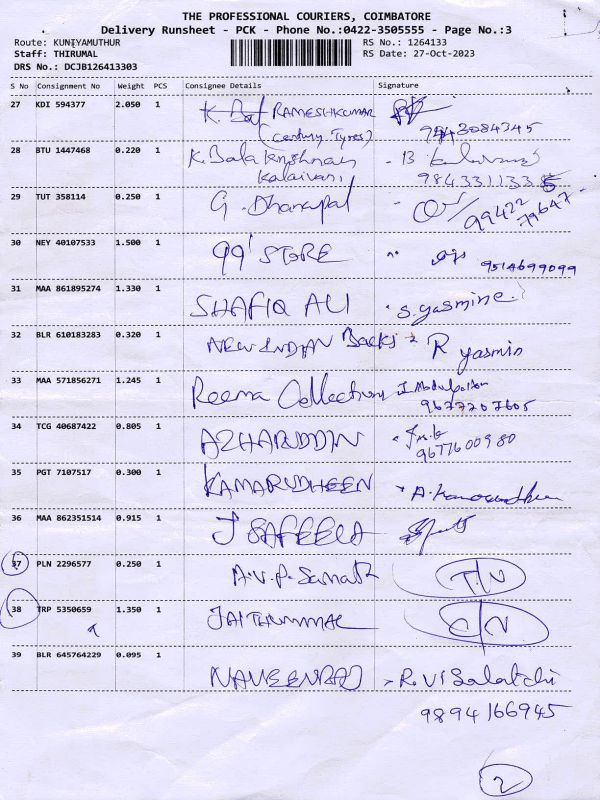 THE PROFESSIONAL COURIERS, COIMBATORE
Delivery Runsheet - PCK - Phone No.:0422-3505555 - Page No.:3
Route: KUNIYAMUTHUR RS No.: 1264133
Staff: THIRUMAL RS Date: 27-Oct-2023
DRS No.: DCJB126413303
S No Consignment No Weight PCS Consignee Details Signature
27 KDI 594377 2.050 1 K. RAMESHKUMAR
(Century Tyres) 9843084345
28 BTU 1447468 0.220 1 K. Bala Krishnan
Kalaivani
29 TUT 358114 0.250 1 G. Dhanapal 99422
79647
30 NEY 40107533 1.500 1 99' STORE
9514699099
31 MAA 861895274 1.330 1 SHAFIQ ALI S. yasmine.
32 BLR 610183283 0.320 1 NEW INDIAN R yasmin
33 MAA 571856271 1.245 1 Reema Collections
9677207605
34 TCG 40687422 0.805 1 AZHARUDDIN
9677600980
35 PGT 7107517 0.300 1 KAMARUDHEEN
36 MAA 862351514 0.915 1 J SAFEELA
37 PLN 2296577 0.250 1 A.V.P. Sampath T/N
38 TRP 5350659 1.350 1 JAITHUMMAL C/N
39 BLR 645764229 0.095 1 NAVEENRAJ R. Visalatchi
9894166945
2